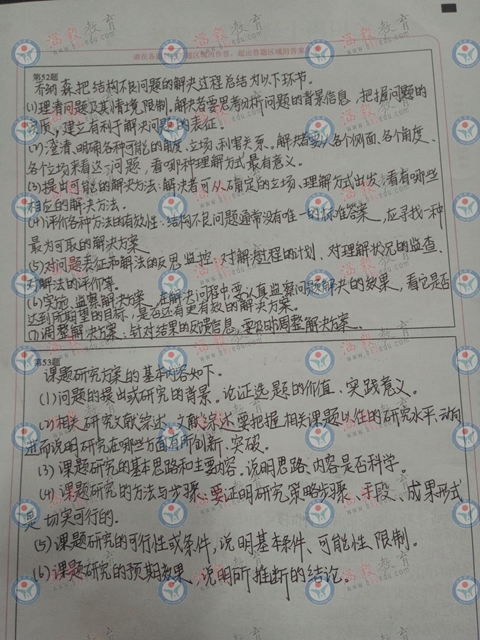 请在各题目的答题区域内作答，超出答题区域的答案无效
第52题
乔纳森把结构不良问题的解决过程总结为以下环节。
(1)理清问题及其情境限制。解决者要思考分析问题的背景信息，把握问题的
实质，建立有利于解决问题的表征。
(2)澄清、明确各种可能的角度、立场、利害关系。解决者要从各个侧面、各个角度、
各个立场来看这一问题，看哪种理解方式最有意义。
(3)提出可能的解决方法：解决者可从不确定的立场、理解方式出发，看有哪些
相应的解决方法。
(4)评价各种方法的有效性：结构不良问题通常没有唯一的标准答案，应寻找一种
最为可取的解决方案。
(5)对问题表征和解法的反思监控。对解决过程的计划、对理解状况的监查、
对解法的评价等。
(6)实施、监察解决方案。在解决问题中要认真监察问题解决的效果，看它是否
达到所期望的目标，是否还有更有效的解决方案。
(7)调整解决方案：针对结果的反馈信息，要及时调整解决方案。
第53题
课题研究方案的基本内容如下。
(1)问题的提出或研究的背景。论证选题的价值、实践意义。
(2)相关研究文献综述。文献综述要把握相关课题以往的研究水平、动向
进而说明研究在哪些方面有所创新、突破。
(3)课题研究的基本思路和主要内容。说明思路、内容是否科学。
(4)课题研究的方法与步骤：要证明研究策略步骤、手段、成果形式
是切实可行的。
(5)课题研究的可行性或条件，说明基本条件、可能性、限制。
(6)课题研究的预期效果，说明所推断的结论。